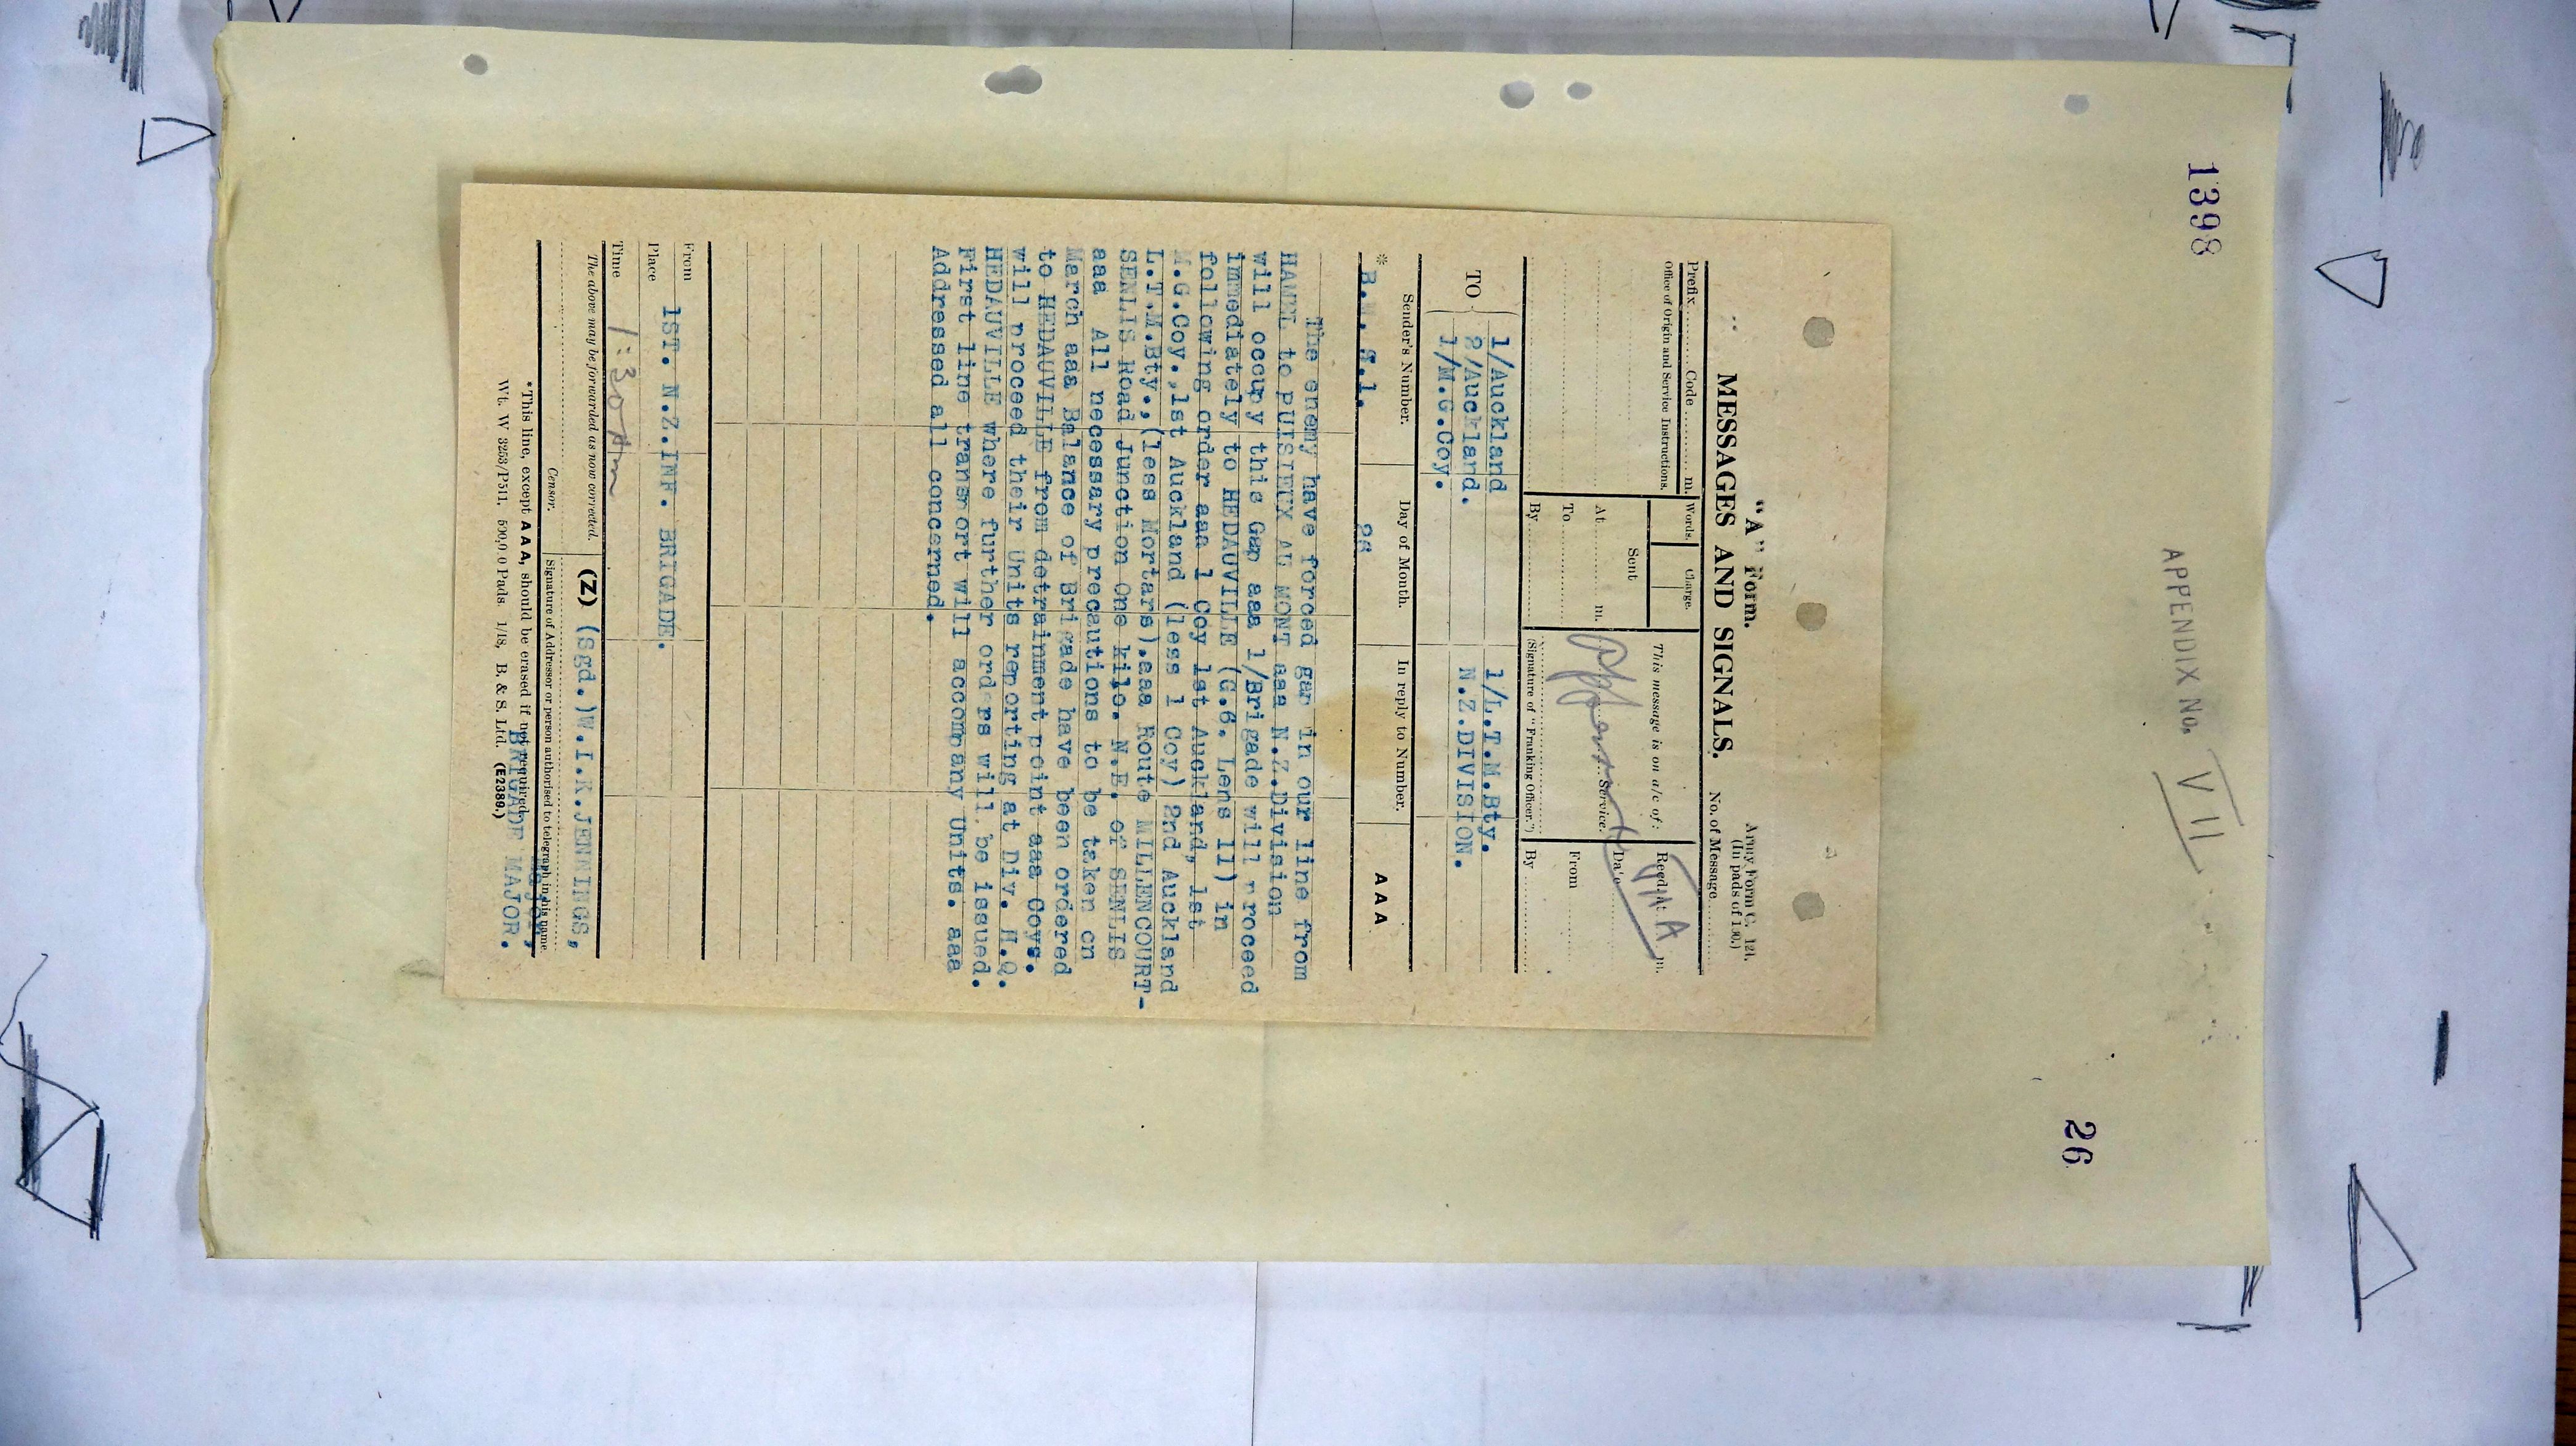 1398
APPENDIX No. VII
26
"A" Form.
Army Form C. 121.
MESSAGES AND SIGNALS.
(In pads of 100.)
No. of Message
Prefix Code m.
Words.
Charge.
This message is on a/c of:
Recd. at m.
Office of Origin and Service Instructions.
Sent
Date
At m.
Service.
From
To
By
(Signature of "Franking Officer.")
By
Appendix VII A
TO
1/Auckland
2/Auckland.
1/M.G.Coy.
1/L.T.M.Bty.
N.Z.DIVISION.
Sender's Number.
Day of Month.
In reply to Number.
AAA
* B.M. 1.
26
The enemy have forced gap in our line from
HAMEL to PUISIEUX AU MONT aaa N.Z.Division
will occupy this Gap aaa 1/Brigade will proceed
immediately to HEDAUVILLE (G.6. Lens 11) in
following order aaa 1 Coy 1st Auckland, 1st
M.G.Coy.,1st Auckland (less 1 Coy) 2nd Auckland
L.T.M.Bty.,(less Mortars).aaa Route MILLENCOURT-
SENLIS Road Junction One kilo. N.E. of SENLIS
aaa All necessary precautions to be taken on
March aaa Balance of Brigade have been ordered
to HEDAUVILLE from detrainment point aaa Coys.
will proceed their Units reporting at Div. H.Q.
HEDAUVILLE where further orders will be issued.
First line transport will accompany Units. aaa
Addressed all concerned.
From
1ST. N.Z.INF. BRIGADE.
Place
Time
1:30 Am
The above may be forwarded as now corrected.
(Z)
(Sgd.)W.I.K.JENNINGS,
Censor.
Signature of Addressor or person authorised to telegraph in his name
Major,
*This line, except AAA, should be erased if not required.
BRIGADE MAJOR.
Wt. W 3253/P511. 500,000 Pads. 1/18. B. & S. Ltd. (E2389.)